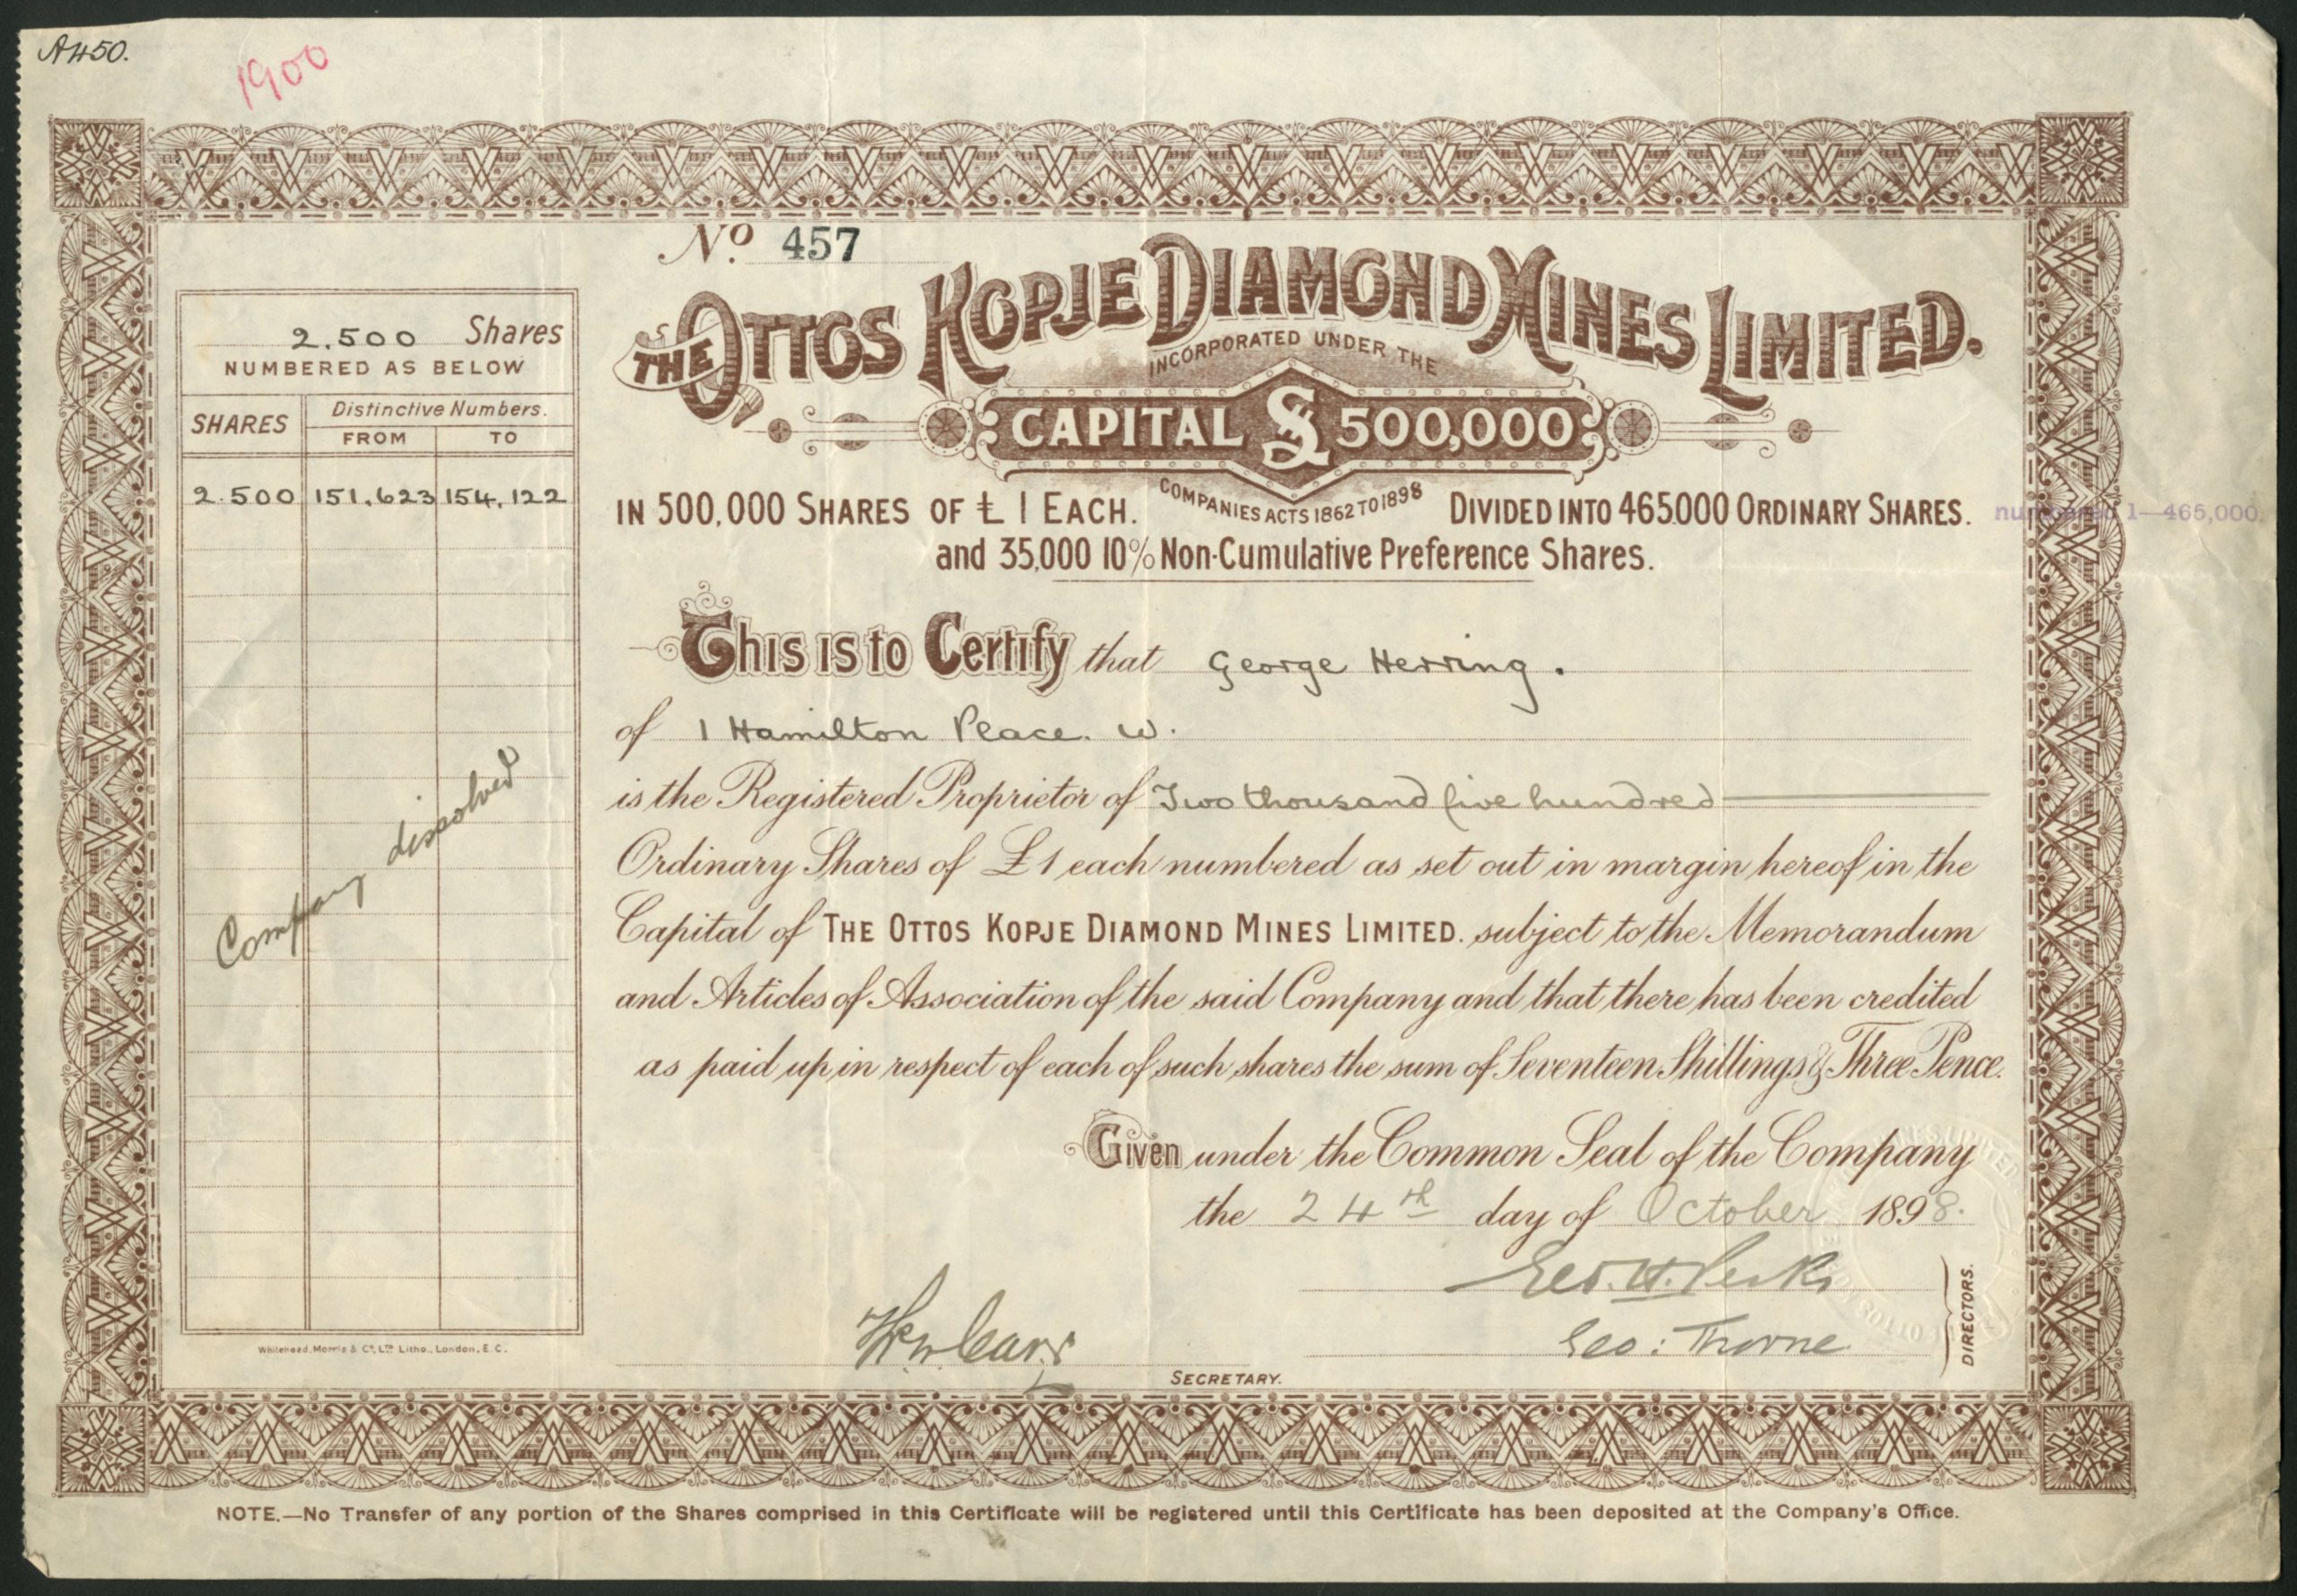 A450.
1900
No. 457
THE OTTOS KOPJE DIAMOND MINES LIMITED.
INCORPORATED UNDER THE
CAPITAL £ 500,000
COMPANIES ACTS 1862 TO 1898
IN 500,000 SHARES OF £ 1 EACH. DIVIDED INTO 465000 ORDINARY SHARES. numbered 1—465,000.
and 35,000 10% Non-Cumulative Preference Shares.
2.500 Shares
NUMBERED AS BELOW
SHARES Distinctive Numbers.
FROM TO
2.500 151,623 154,122
Company dissolved
This is to Certify that George Herring.
of 1 Hamilton Place. W.
is the Registered Proprietor of Two thousand five hundred
Ordinary Shares of £1 each numbered as set out in margin hereof in the
Capital of THE OTTOS KOPJE DIAMOND MINES LIMITED. subject to the Memorandum
and Articles of Association of the said Company and that there has been credited
as paid up in respect of each of such shares the sum of Seventeen Shillings & Three Pence.
Given under the Common Seal of the Company
the 24th day of October 1898.
Geo: Thorne
DIRECTORS.
SECRETARY.
Whitehead, Morris & Co. LTD. Litho., London, E.C.
NOTE.—No Transfer of any portion of the Shares comprised in this Certificate will be registered until this Certificate has been deposited at the Company's Office.